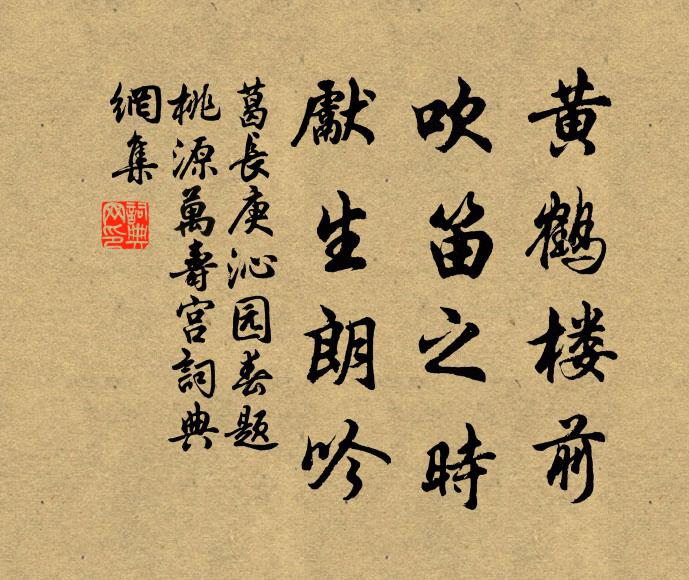 黄鹤楼前
吹笛之时
獻生朗吟
葛長庚沁园春题
桃源萬壽宫詞典
網集
詞典
网印